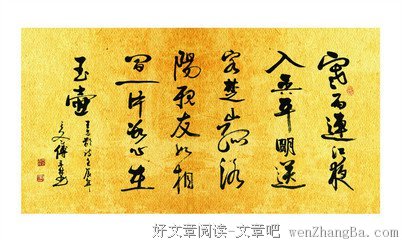 寒雨連江夜
入吳平明送
客楚山孤洛
陽親友如相
問一片冰心在
玉壺
王昌齡詩壬辰年
好文章阅读-文章吧 wenZhangBa.Com